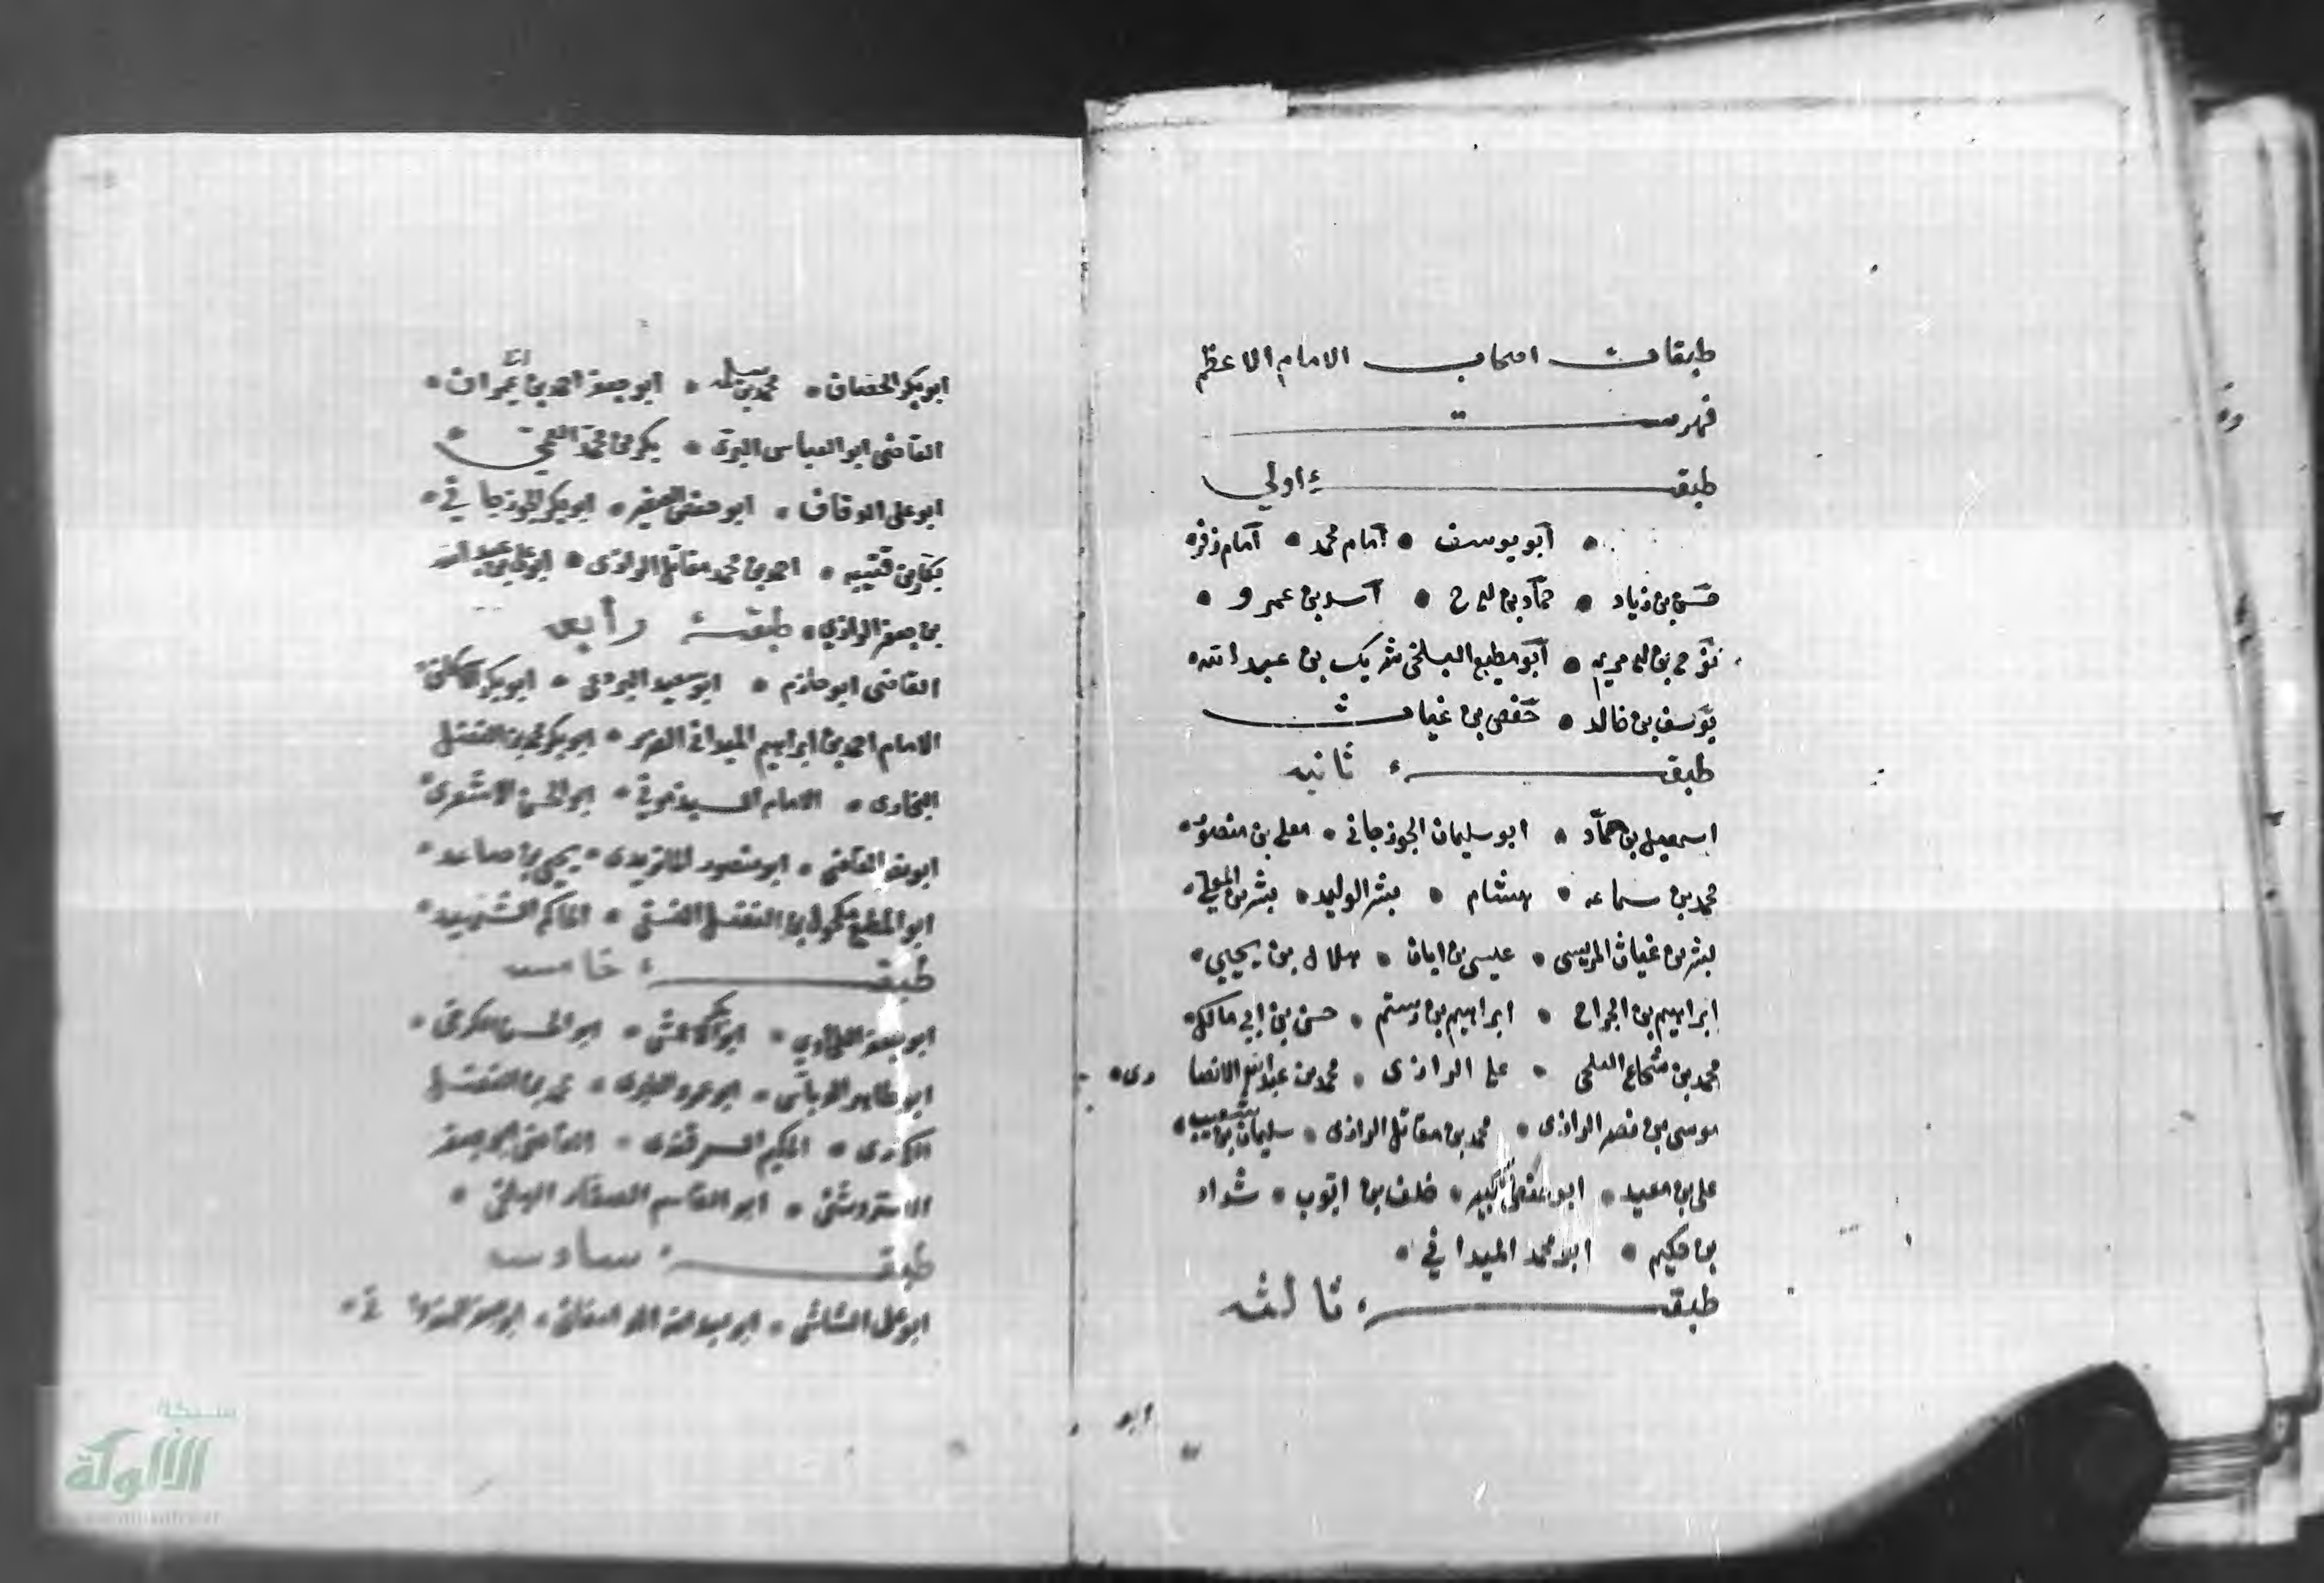 طبقات اصحاب الامام الاعظم
فهرست
طبقهٔ اولي
ابو يوسف • امام محمد • امام زفر •
حسن بن زياد • حماد بن • اسد بن عمرو •
نوح بن مريم • ابو مطيع البلخى شريك بن عبد الله •
يوسف بن خالد • حفص بن غياث
طبقهٔ ثانيه
اسمعيل بن حماد • ابو سليمان الجوزجانى • معلى بن منصور •
محمد بن سماعه • هشام • بشر الوليد • بشر بن المعلى •
بشر بن غياث المريسى • عيسى بن ابان • هلال بن يحيى •
ابراهيم بن الجراح • ابراهيم بن رستم • حسن بن ابي مالك •
محمد بن شجاع الثلجى • على الرازى • محمد بن عبد الله الانصا رى •
موسى بن نصر الرازى • محمد بن مقاتل الرازى • سليمان بن شعيب •
على بن معبد • ابو حفص الكبير • خلف بن ايوب • شداد
بن حكيم • ابو محمد الميدانى •
طبقهٔ ثالثه
ابو
ابو بكر الخصاف • محمد بن سلمه • ابو جعفر احمد بن عمران •
القاضى ابو العباس البرتى • بكر بن محمد العمى •
ابو على الدقاق • ابو حفص الصغير • ابو بكر الجوزجاني •
بكار بن قتيبه • احمد بن محمد مقاتل الرازى • ابو على عبد الله
بن جعفر الرازي • طبقهٔ رابعه
القاضى ابو حازم • ابو سعيد البردعى • ابو بكر الاسكاف •
الامام احمد بن ابراهيم الميدانى • ابو بكر محمد بن الفضل
البخارى • الامام السبذمونى • ابو الحسن الاشعرى •
ابو نصر • ابو منصور الماتريدى • يحيى بن صاعد •
ابو المطيع مكحول بن الفضل النسفى • الحاكم الشهيد •
طبقهٔ خامسه
ابو جعفر الطحاوي • ابو بكر الاعمش • ابو الحسن الكرخى •
ابو طاهر الدباس • ابو عمرو الطبرى • محمد بن الفضل
• الحكيم السمرقندى • القاضى ابو جعفر
الاستروشنى • ابو القاسم الصفار البلخى •
طبقهٔ سادسه
ابو على الشاشى • ابو عبد الله • ابو جعفر الهندوا نى •
شبكة
الألوكة